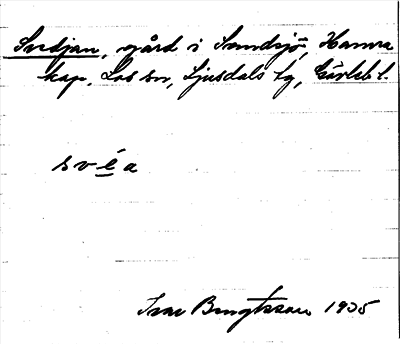 Svedjan, gård i Sandsjö, Hamra
kap., Los sn, Ljusdals tg, Gävleb l.
svéa
Ivar Bengtsson 1935